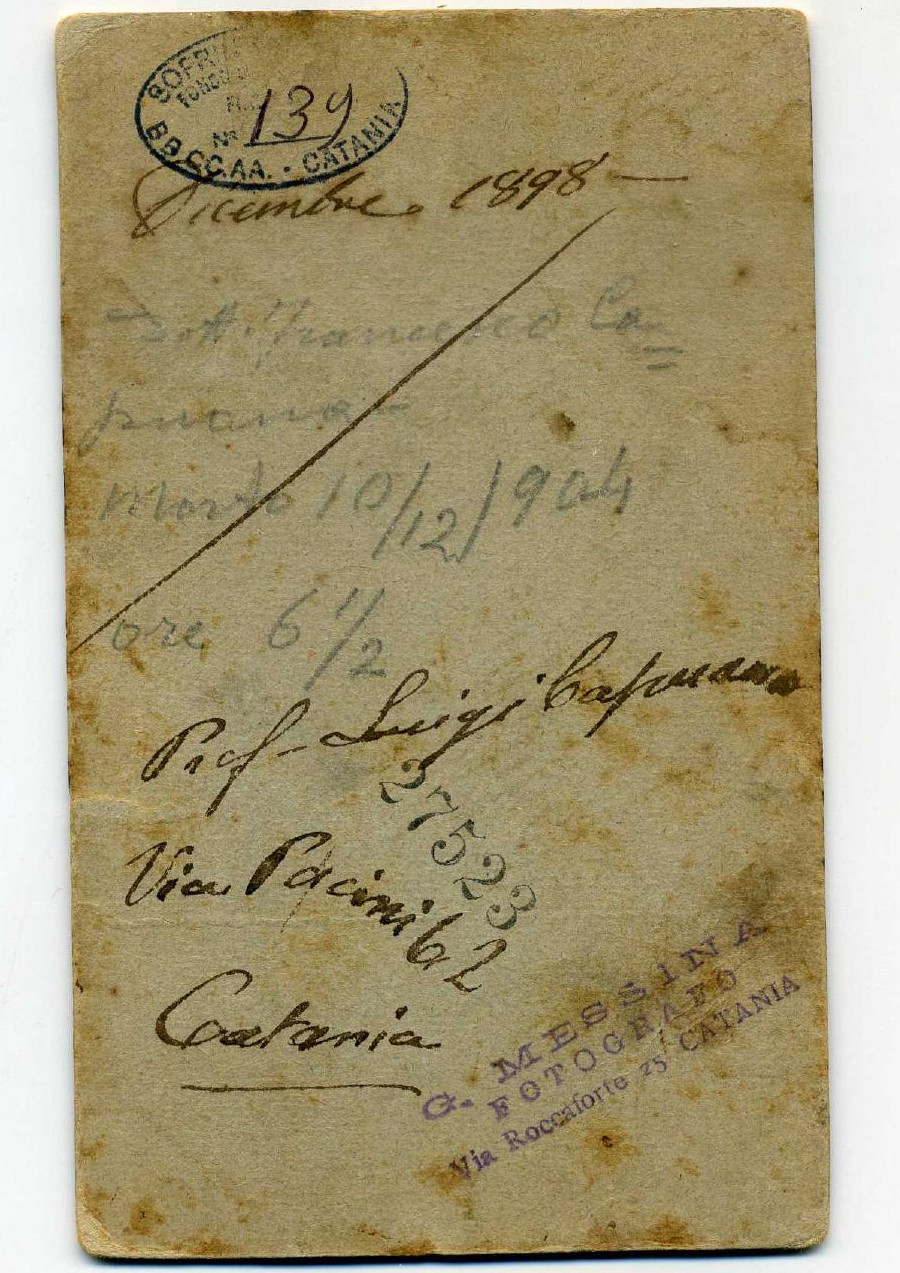 FONDO
Nº 139
BB.CC.AA. - CATANIA
Dicembre 1898 —
Dott. Francesco Ca=
puana
Morto 10/12/904
ore 6 1/2
Prof - Luigi Capuana
27523
Via Pacini 62
Catania
G. MESSINA
FOTOGRAFO
Via Roccaforte 25 CATANIA